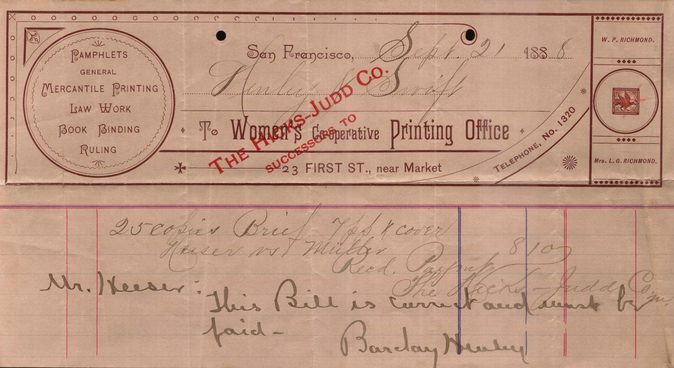 PAMPHLETS
GENERAL
MERCANTILE PRINTING
LAW WORK
BOOK BINDING
RULING
San Francisco, Sept. 21 1888
Henley & Swift
THE HICKS-JUDD CO.
SUCCESSORS TO
To Women's Co-operative Printing Office
23 FIRST ST., near Market
TELEPHONE, No. 1320
W. P. RICHMOND.
Mrs. L. G. RICHMOND.
25 copies Brief & cover
Keiser vs Muller 810
Recd. Paymt
The Hicks-Judd Co
Mr. Keeser:
This Bill is correct and must be
paid-
Barclay Henley